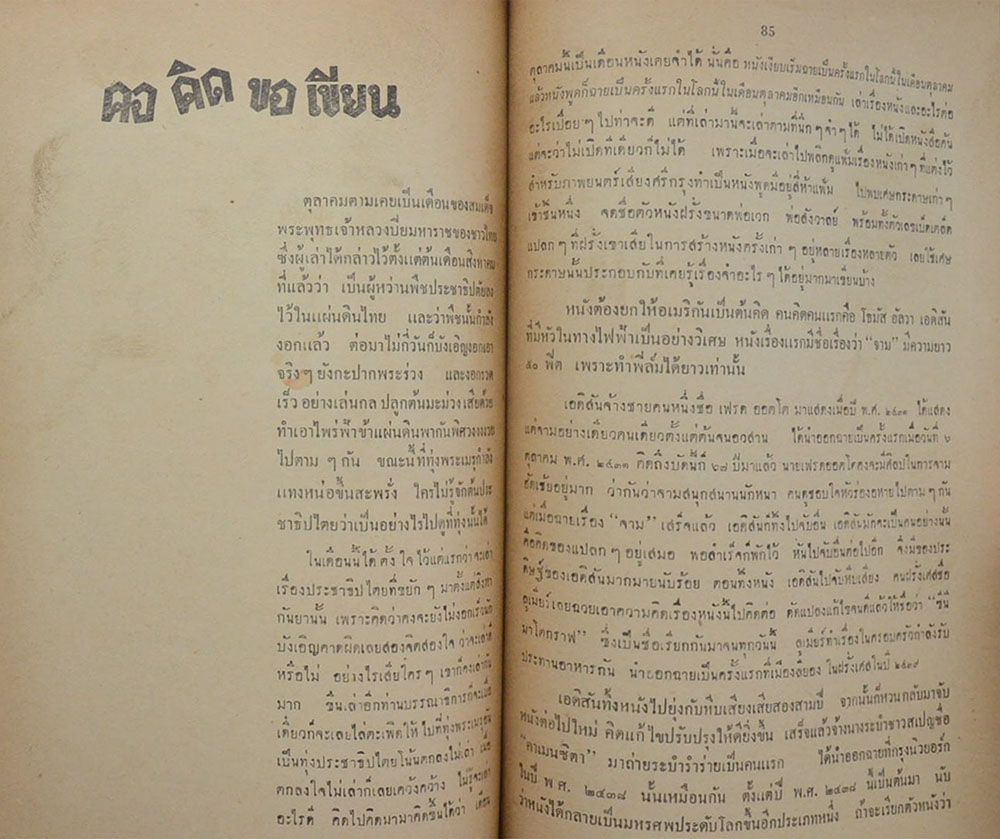 คอ คิด ขอ เขียน
ตุลาคมตามเคยเป็นเดือนของสมเด็จ
พระพุทธเจ้าหลวงปิยมหาราชของชาวไทย
ซึ่งผู้เล่าได้กล่าวไว้ตั้งแต่ต้นเดือนสิงหาคม
ที่แล้วว่า เป็นผู้หว่านพืชประชาธิปตัยลง
ไว้ในแผ่นดินไทย และว่าพืชนั้นกำลัง
งอกแล้ว ต่อมาไม่กี่วันก็บังเอิญงอกเอา
จริงๆ ยังกะปากพระร่วง และงอกรวด
เร็วอย่างเล่นกล ปลูกต้นมะม่วงเสียด้วย
ทำเอาไพร่ฟ้าข้าแผ่นดินพากันพิศวงงงงวย
ไปตามๆกัน ขณะนี้ที่ทุ่งพระเมรุกำลัง
แทงหน่อขึ้นสะพรั่ง ใครไม่รู้จักต้นประ
ชาธิปไตยว่าเป็นอย่างไรไปดูที่ทุ่งนั้นได้
ในเดือนนี้ได้ตั้งใจไว้แต่แรกว่าจะเล่า
เรื่องประชาธิปไตยที่ขยักๆ มาตั้งแต่สิงหา
กันยานั้น เพราะคิดว่าคงจะยังไม่งอกเร็วนัก
บังเอิญคาดผิดเลยสองจิตสองใจ ว่าจะเล่าดี
หรือไม่ อย่างไรเสียใครๆ เขาก็คงเล่ากัน
มาก ขืนเล่าอีกท่านบรรณาธิการก็จะเบื่อ
เดี๋ยวก็จะเลยไล่ตะเพิดให้ไปที่ทุ่งพระเมรุอัน
เป็นทุ่งประชาธิปไตยโน้นตกลงไม่เล่า เมื่อ
ตกลงใจไม่เล่าก็เลยเคว้งคว้าง ไม่รู้จะเล่า
อะไรดี คิดไปคิดมามาคิดขึ้นได้ว่า เดือน
85
ตุลาคมนี้เป็นเดือนหนังเคยจำได้ นั่นคือ หนังเงียบเริ่มฉายเป็นครั้งแรกในโลกนี้ในเดือนตุลาคม
แล้วหนังพูดก็ฉายเป็นครั้งแรกในโลกนี้ในเดือนตุลาคมอีกเหมือนกัน เล่าเรื่องหนังและอะไรต่อ
อะไรเปื่อยๆไปท่าจะดี แต่ที่เล่ามานี้จะเล่าตามที่นึกๆจำๆได้ ไม่ได้เปิดหนังสือค้น
แต่จะว่าไม่เปิดทีเดียวก็ไม่ได้ เพราะเมื่อจะเล่าไปพลิกดูแฟ้มเรื่องหนังเก่าๆที่แต่งไว้
สำหรับภาพยนตร์เสียงศรีกรุงทำเป็นหนังพูดมีอยู่สี่ห้าแฟ้ม ไปพบเศษกระดาษเก่าๆ
เข้าชิ้นหนึ่ง จดชื่อตัวหนังฝรั่งขนาดพ่อเวก พ่อสังวาลย์ พร้อมทั้งตัวเลขเบ็ดเตล็ด
แปลกๆที่ฝรั่งเขาเสียในการสร้างหนังครั้งเก่าๆ อยู่หลายเรื่องหลายตัว เลยใช้เศษ
กระดาษนั้นประกอบกับที่เคยรู้เรื่องจำอะไรๆได้อยู่มากมาเขียนบ้าง
หนังต้องยกให้อเมริกันเป็นต้นคิด คนคิดคนแรกคือ โธมัส อัลวา เอดิสัน
ที่มีหัวในทางไฟฟ้าเป็นอย่างวิเศษ หนังเรื่องแรกมีชื่อเรื่องว่า “จาม” มีความยาว
๕๐ ฟีต เพราะทำฟิล์มได้ยาวเท่านั้น
เอดิสันจ้างชายคนหนึ่งชื่อ เฟรด ออตโต มาแสดงเมื่อปี พ.ศ. ๒๔๓๑ ได้แสดง
แต่จามอย่างเดียวคนเดียวตั้งแต่ต้นจนอวสาน ได้นำออกฉายเป็นครั้งแรกเมื่อวันที่ ๖
ตุลาคม พ.ศ. ๒๔๓๑ คิดถึงบัดนี้ก็ ๖๘ ปีมาแล้ว นายเฟรดออตโตคงจะมีศิลปในการจาม
ฮัดเช้ยอยู่มาก ว่ากันว่าจามสนุกสนานนักหนา คนดูชอบใจหัวร่องอหายไปตามๆกัน
แต่เมื่อฉายเรื่อง “จาม” เสร็จแล้ว เอดิสันก็ทิ้งไปจับอื่น เอดิสันมักจะเป็นคนอย่างนั้น
คือคิดของแปลกๆอยู่เสมอ พอสำเร็จก็พักไว้ หันไปจับอื่นต่อไปอีก จึงมีของประ
ดิษฐ์ของเอดิสันมากมายนับร้อย ตอนทิ้งหนัง เอดิสันไปจับหีบเสียง คนฝรั่งเศสชื่อ
ลูเมียร์เลยฉวยเอาความคิดเรื่องหนังนี้ไปคิดต่อ ดัดแปลงแก้ไขจนดีแล้วให้ชื่อว่า “ซีนี
มาโตกราฟ” ซึ่งเป็นชื่อเรียกกันมาจนทุกวันนี้ ลูเมียร์ทำเรื่องในครอบครัวกำลังรับ
ประทานอาหารกัน นำออกฉายเป็นครั้งแรกที่เมืองลียอง ในฝรั่งเศสในปี ๒๔๓๙
เอดิสันทิ้งหนังไปยุ่งกับหีบเสียงเสียสองสามปี จากนั้นก็หวนกลับมาจับ
หนังต่อไปใหม่ คิดแก้ไขปรับปรุงให้ดียิ่งขึ้น เสร็จแล้วจ้างนางระบำชาวสเปญชื่อ
“คาเมนซิตา” มาถ่ายระบำรำร่ายเป็นคนแรก ได้นำออกฉายที่กรุงนิวยอร์ก
ในปี พ.ศ. ๒๔๓๘ นั้นเหมือนกัน ตั้งแต่ปี พ.ศ. ๒๔๓๘ นี้เป็นต้นมา นับ
ว่าหนังได้กลายเป็นมหรศพประดับโลกขึ้นอีกประเภทหนึ่ง ถ้าจะเรียกตัวหนังว่า